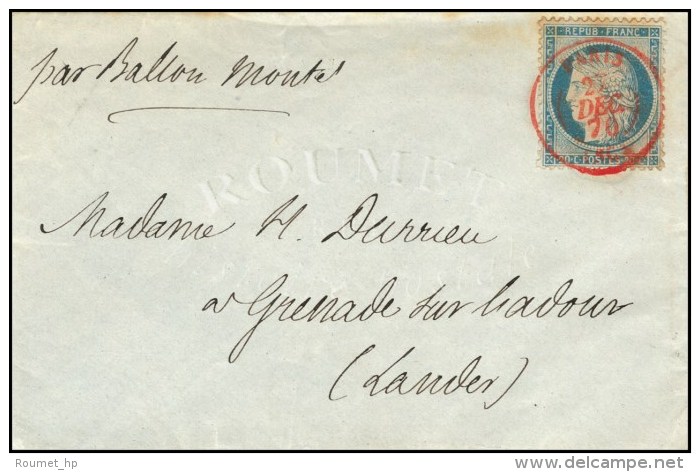 REPUB · FRANC
PARIS
DEC.
70
20 · C · POSTES · 20 · C
par Ballon Monté
ROUMET
Madame H. Durrieu
à Grenade sur l'adour
(Landes)
Roumet_hp
www.delcampe.net